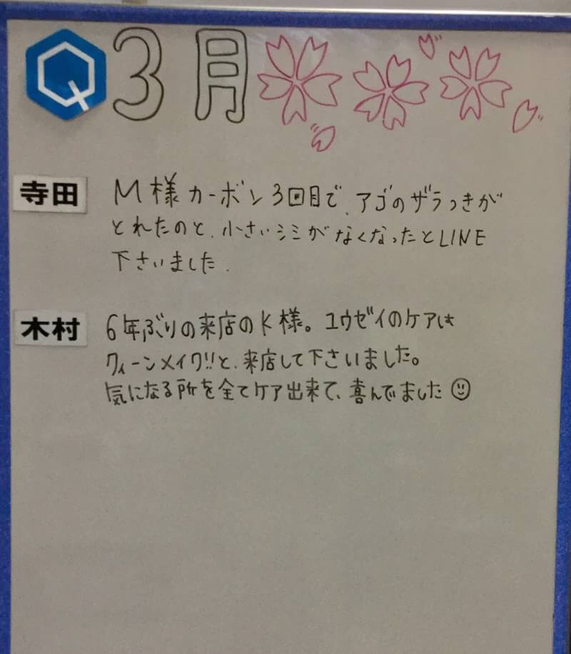 Q 3月
寺田
M様カーボン3回目で、アゴのザラつきが
とれたのと、小さいシミがなくなったとLINE
下さいました.
木村
6年ぶりの来店のK様。ユウゼイのケアは
クィーンメイク!!と、来店して下さいました。
気になる所を全てケア出来て、喜んでました